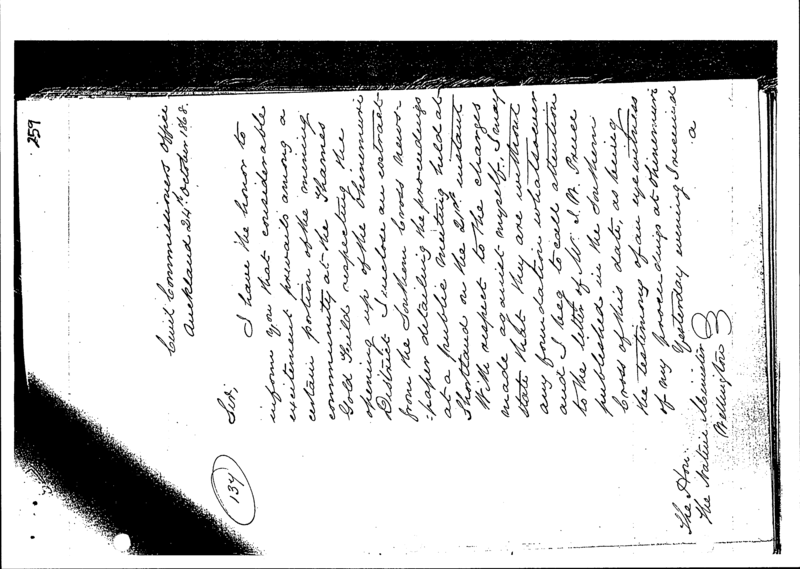 259
Civil Commissioners Office
Auckland 24th October 1868.
Sir,
134
I have the honor to
inform you that considerable
excitement prevails among a
certain portion of the mining
community at the Thames
Gold Field respecting the
opening up of the Ohinemuri
District. I inclose an extract
from the Southern Cross news-
:paper detailing the proceedings
at a public meeting held at
Shortland on the 21st instant
With respect to the charges
made against myself, I may
state that they are without
any foundation whatsoever
and I beg to call attention
to the letter of Mr. J. W.
published in the Southern
Cross of this date, as being
the testimony of an eye witness
of my proceedings at Ohinemuri
Yesterday evening I received
a
The Hon.
The Native Minister
Wellington